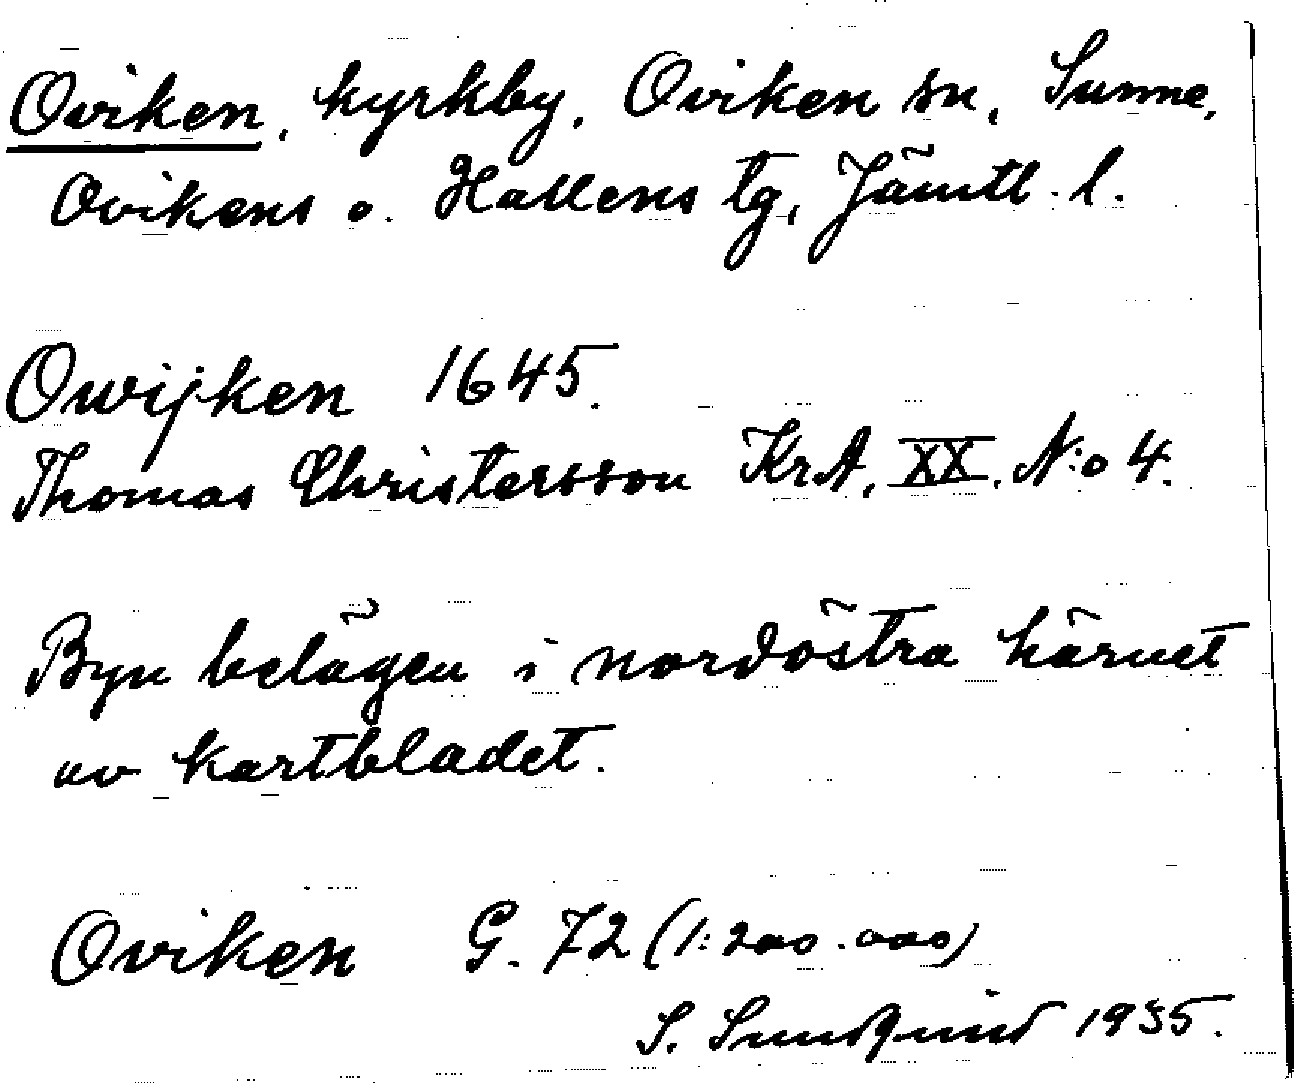 Oviken, kyrkby, Oviken sn, Sunne,
Ovikens o. Hallens tg, Jämtl. l.
Owijken 1645.
Thomas Christersson KrA, XX, N:o 4.
Byn belägen i nordöstra hörnet
av kartbladet.
Oviken G. 72 (1:200.000)
S. Sundqvist 1935.